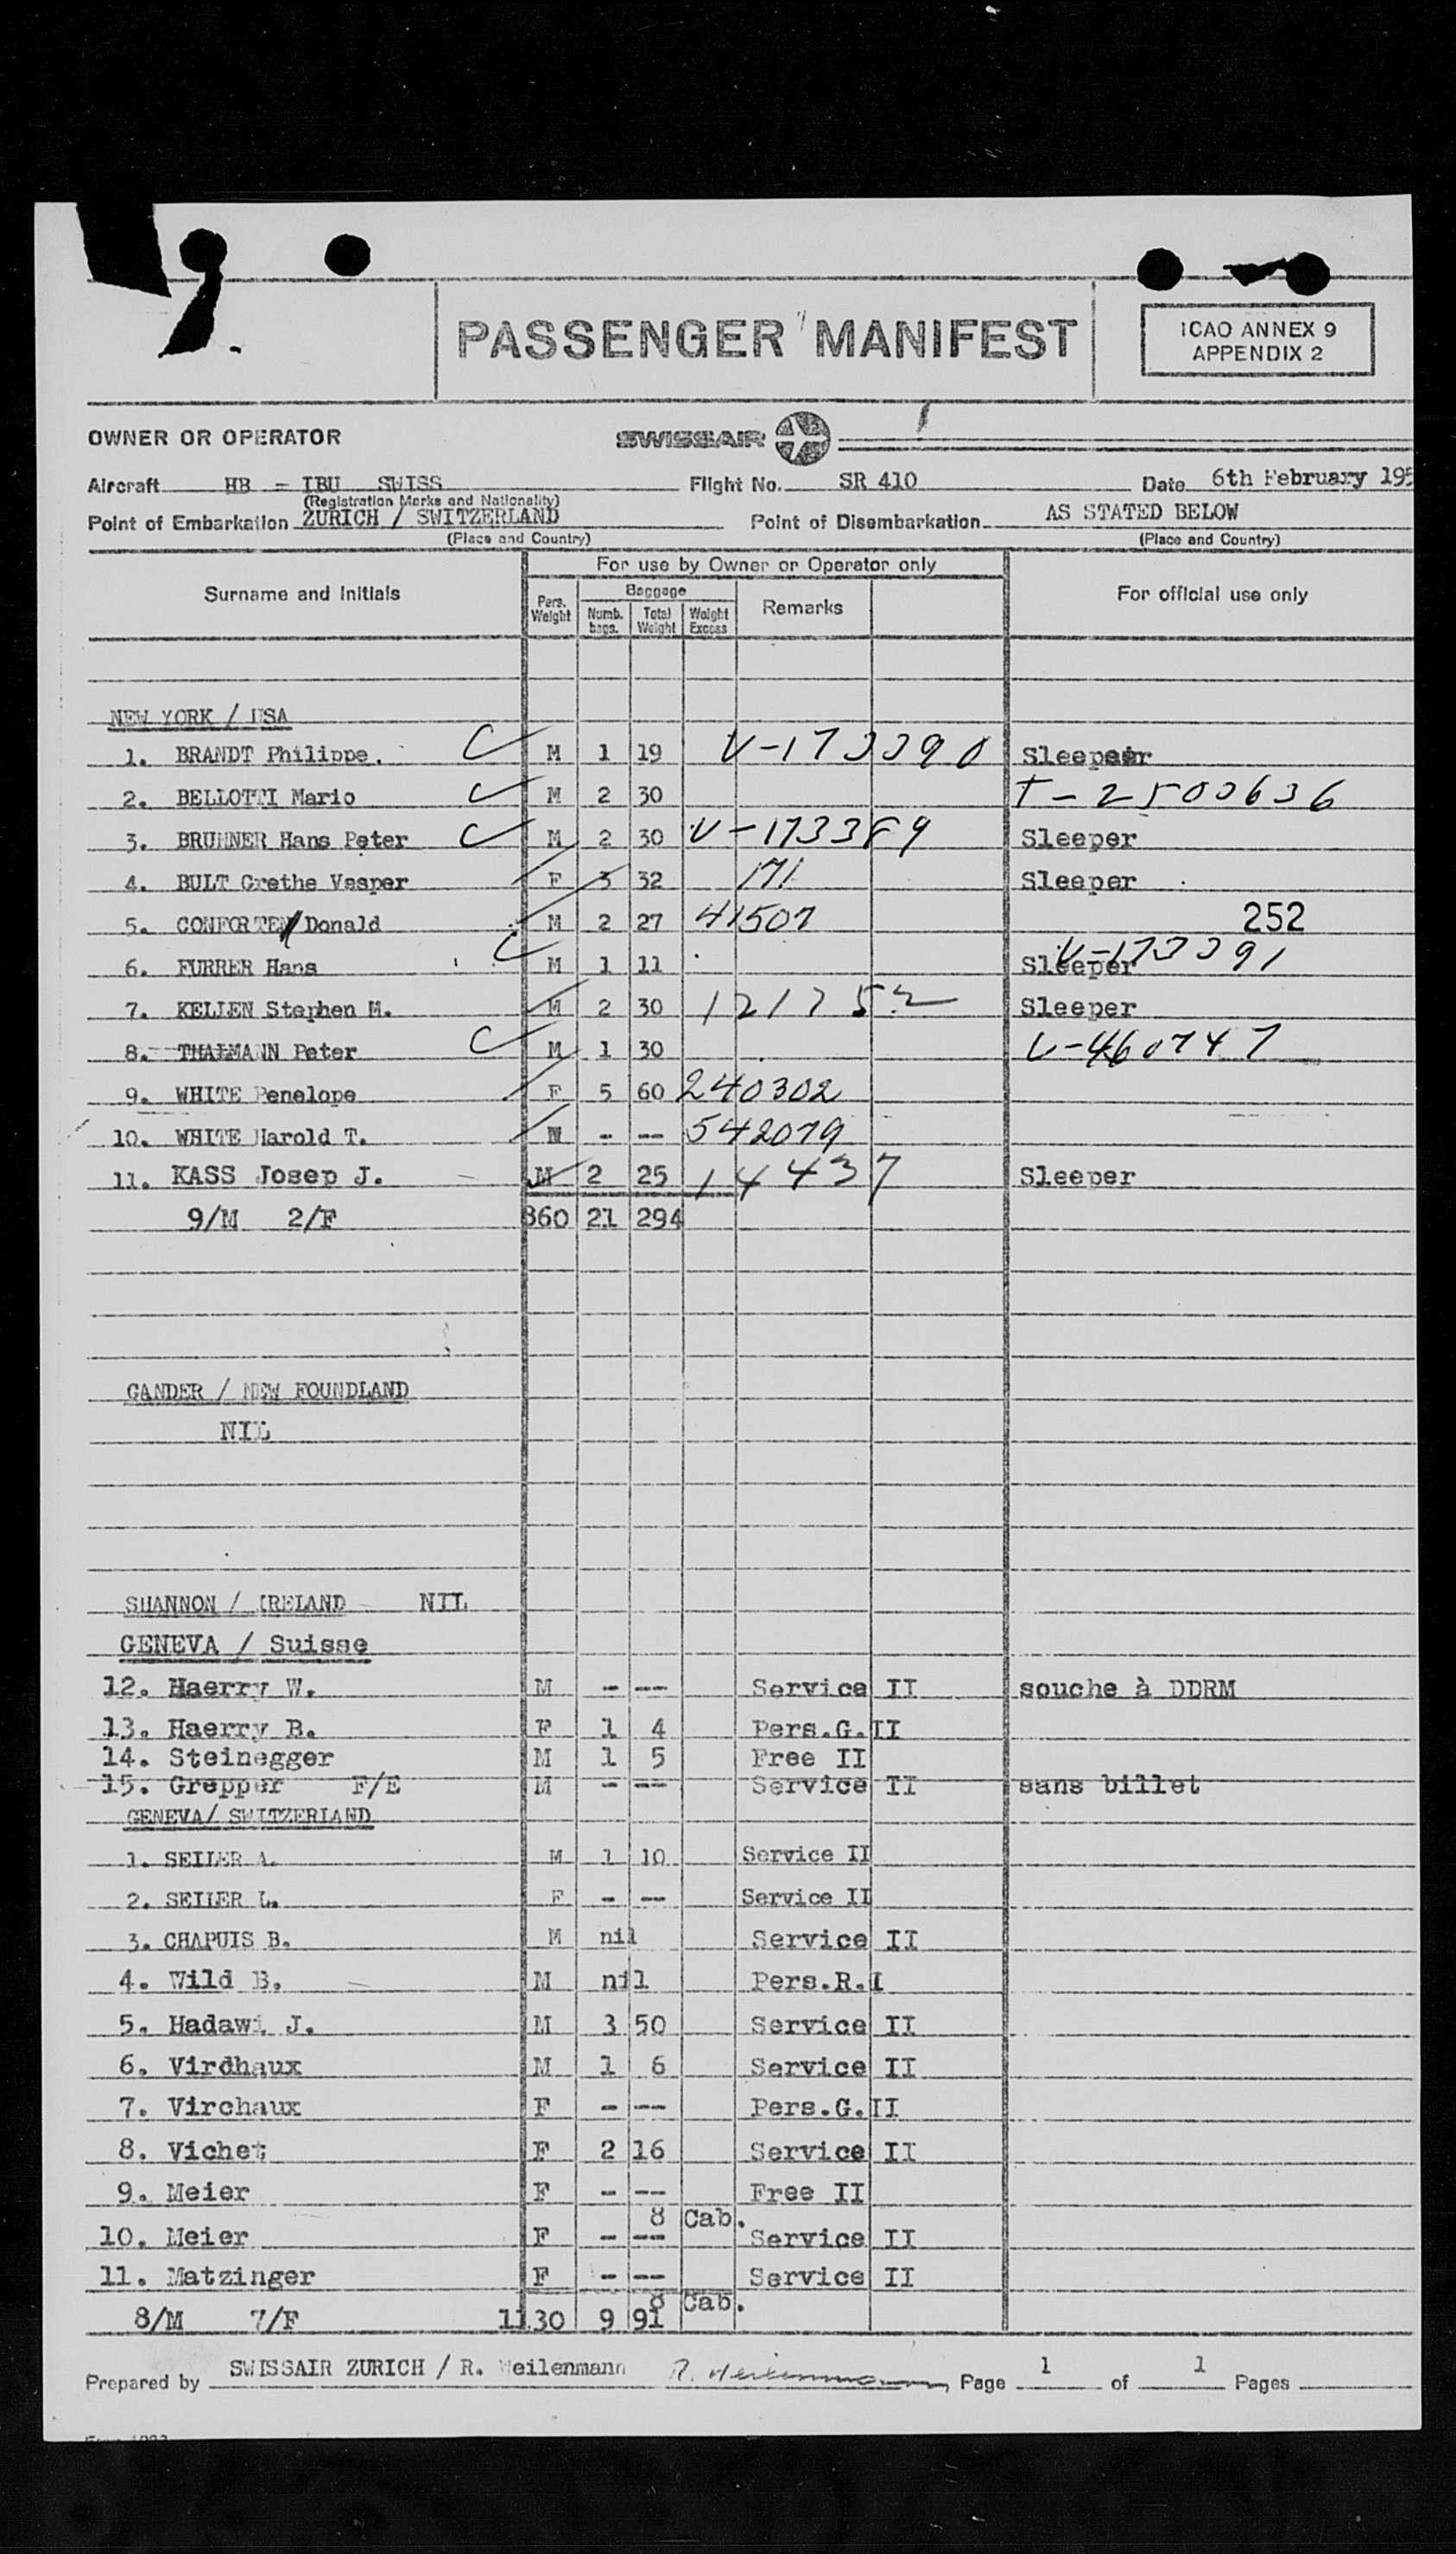 PASSENGER MANIFEST
ICAO ANNEX 9
APPENDIX 2
OWNER OR OPERATOR SWISSAIR
Aircraft HB - IBU SWISS Flight No. SR 410 Date 6th February 195
(Registration Marks and Nationality)
Point of Embarkation ZURICH / SWITZERLAND Point of Disembarkation AS STATED BELOW
(Place and Country) (Place and Country)
For use by Owner or Operator only
Surname and Initials Pers. Weight Baggage Numb. bags. Total Weight Weight Excess Remarks For official use only
NEW YORK / USA
1. BRANDT Philippe. C M 1 19 V-173390 Sleeper
2. BELLOTTI Mario C M 2 30 T-2500636
3. BRUNNER Hans Peter C M 2 30 V-173389 Sleeper
4. BULT Grethe Vesper F 3 32 171 Sleeper
5. CONFORTE Donald M 2 27 41507 252
6. FURRER Hans C M 1 11 Sleeper V-173391
7. KELLEN Stephen M. M 2 30 121752 Sleeper
8. THALMANN Peter C M 1 30 V-460747
9. WHITE Penelope F 5 60 240302
10. WHITE Harold T. M - -- 542079
11. KASS Josep J. M 2 25 14437 Sleeper
9/M 2/F 860 21 294
GANDER / NEW FOUNDLAND
NIL
SHANNON / IRELAND NIL
GENEVA / Suisse
12. Haerry W. M - --- Service II souche à DDRM
13. Haerry R. F 1 4 Pers.G.II
14. Steinegger M 1 5 Free II
15. Grepper F/E M - --- Service II sans billet
GENEVA/ SWITZERLAND
1. SEILER A. M 1 10 Service II
2. SEILER L. F - -- Service II
3. CHAPUIS B. M nil Service II
4. Wild B. M nil Pers.R.I
5. Hadawi J. M 3 50 Service II
6. Virdhaux M 1 6 Service II
7. Virchaux F - --- Pers.G.II
8. Vichet F 2 16 Service II
9. Meier F - --- Free II
8 Cab.
10. Meier F - --- Service II
11. Matzinger F - --- Service II
8 Cab.
8/M 7/F 1130 9 91
Prepared by SWISSAIR ZURICH / R. Weilenmann R. Weilenmann Page 1 of 1 Pages